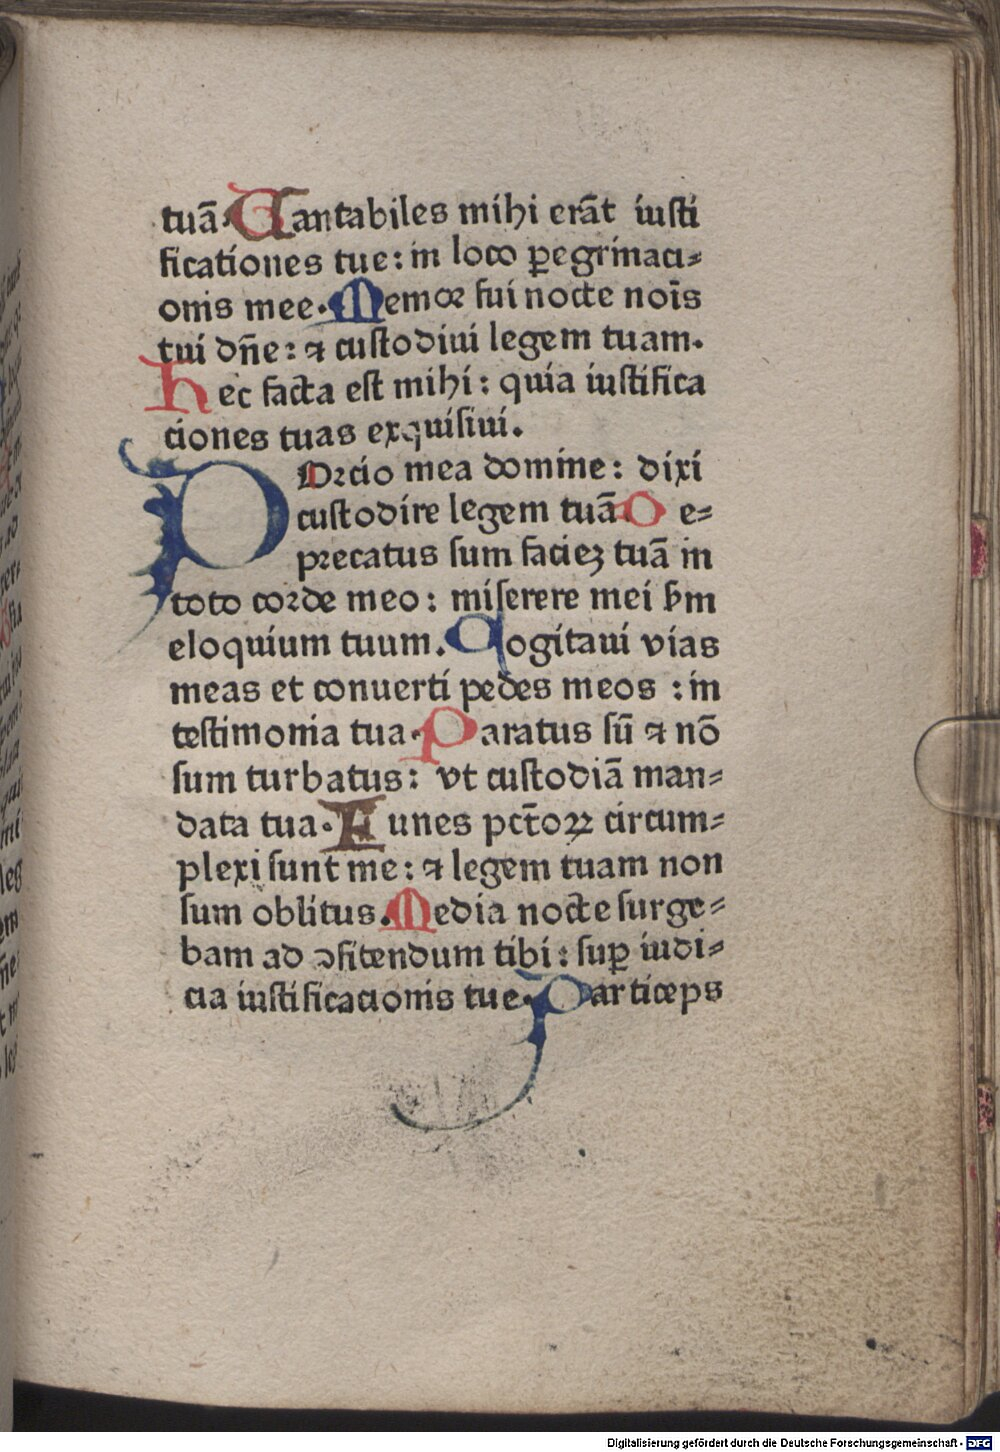 tuā. Cantabiles mihi erāt iusti
ficationes tue: in loco ꝑegrinaci⸗
onis mee. Memoꝛ fui nocte noīs
tui dn̄e: ⁊ custodiui legem tuam.
Hec facta est mihi: quia iustifica
ciones tuas exquisiui.
POꝛcio mea domine: dixi
custodire legem tuā. De⸗
pꝛecatus sum facieꝫ tuā in
toto coꝛde meo: miserere mei ẜm
eloquium tuum. Cogitaui vias
meas et conuerti pedes meos : in
testimonia tua. Paratus sū ⁊ nō
sum turbatus: vt custodiā man⸗
data tua. Funes pctōꝝ circum⸗
plexi sunt me: ⁊ legem tuam non
sum oblitus. Media nocte surge⸗
bam ad ꝯfitendum tibi: suꝑ iudi⸗
cia iustificacionis tue. Particeps
Digitalisierung gefördert durch die Deutsche Forschungsgemeinschaft - DFG